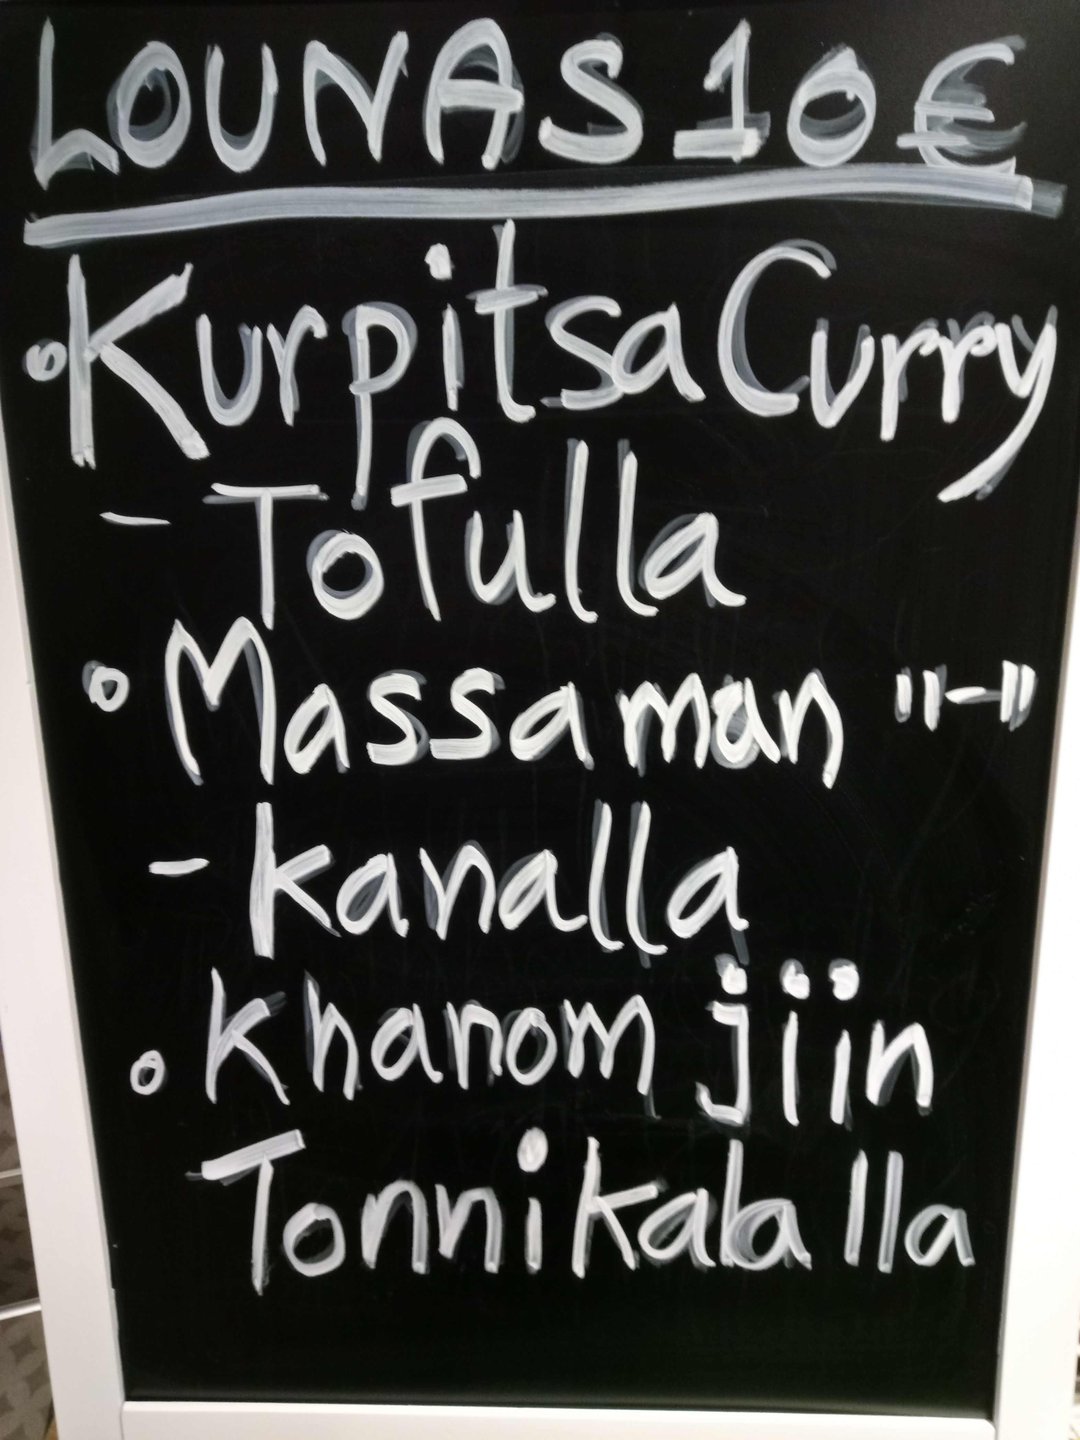 LOUNAS 10 €
• Kurpitsa Curry
- Tofulla
• Massaman "-"
- kanalla
• Khanom jiin
Tonnikalalla